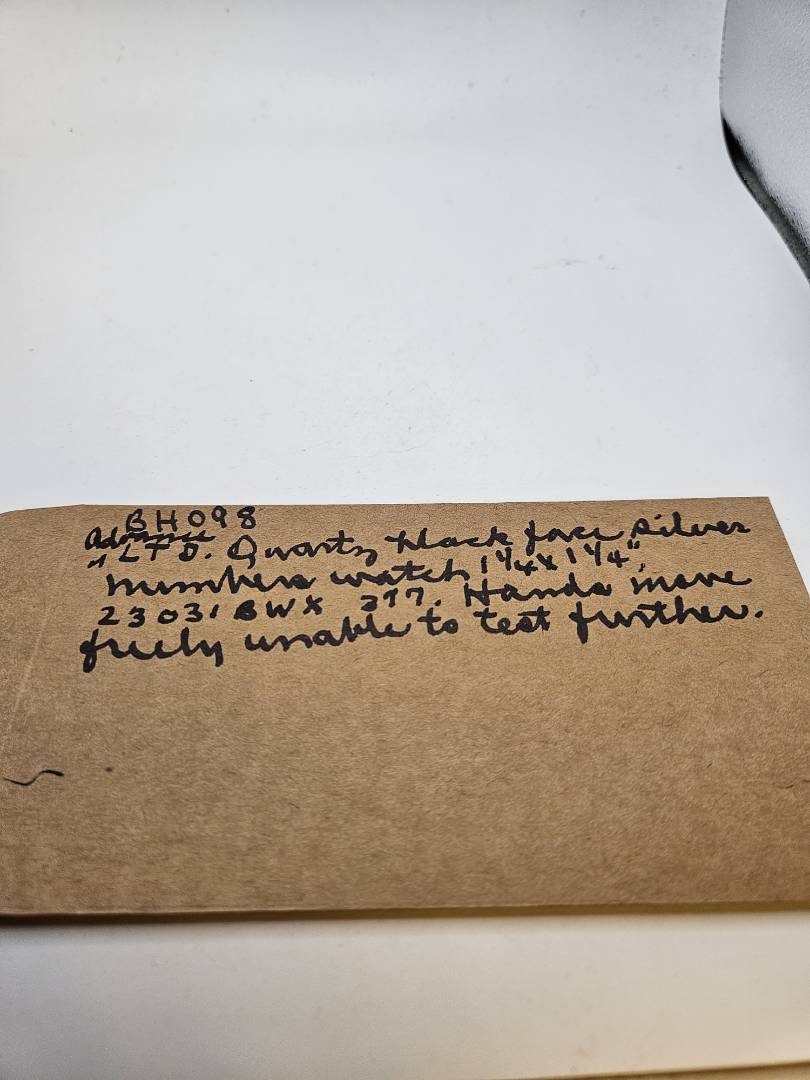 BH098
Advance
LTD. Quartz black face, silver
numbers watch, 1 1/4 x 1 1/4",
23031 BWX 377. Hands move
freely unable to test further.